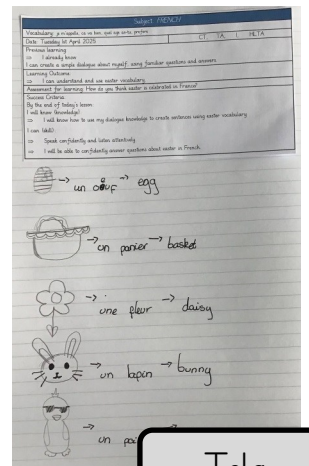 Subject: FRENCH
Vocabulary: je m'appelle, ca va bien, quel age as-tu, prefere
Date: Tuesday 1st April 2025 CT, TA, I, HLTA
Previous learning
⇒ I already know
I can create a simple dialogue about myself, using familiar questions and answers
Learning Outcome:
⇒ I can understand and use easter vocabulary
Assessment for learning: How do you think easter is celebrated in France?
Success Criteria:
By the end of today's lesson:
I will know (knowledge)
⇒ I will know how to use my dialogue knowledge to create sentences using easter vocabulary
I can (skill):
⇒ Speak confidently and listen attentively
⇒ I will be able to confidently answer questions about easter in French.
→ un oeuf → egg
→ un panier → basket
→ une fleur → daisy
→ un lapin → bunny
→ un